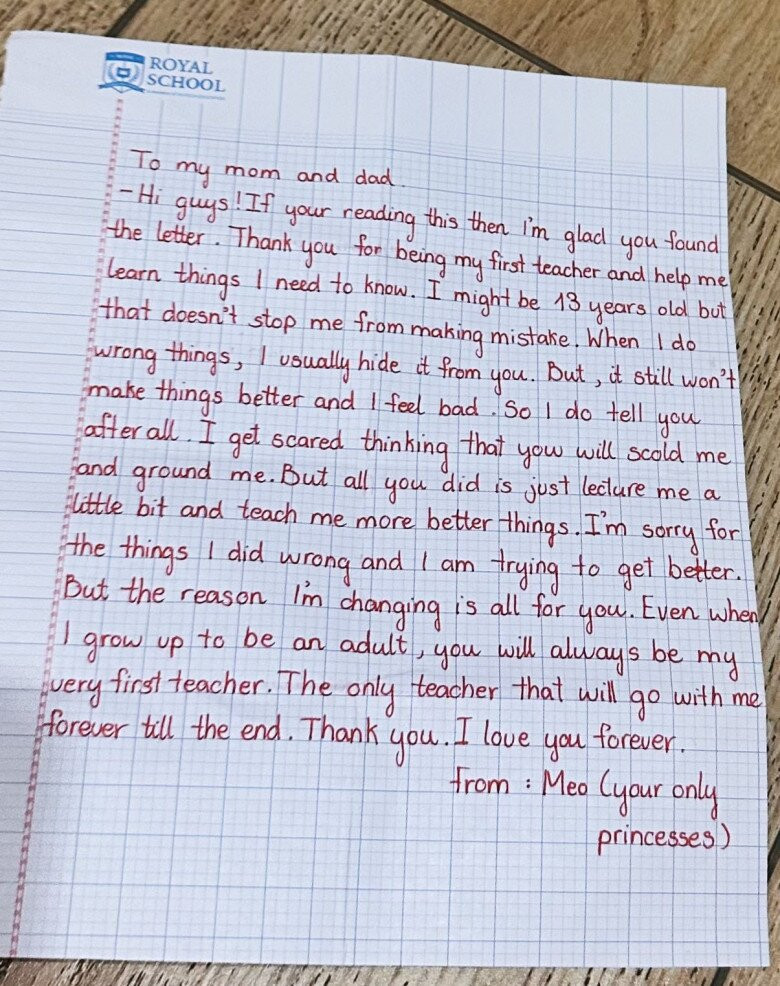 ROYAL
SCHOOL
To my mom and dad.
- Hi guys! If your reading this then I'm glad you found
the letter. Thank you for being my first teacher and help me
learn things I need to know. I might be 13 years old but
that doesn't stop me from making mistake. When I do
wrong things, I usually hide it from you. But, it still won't
make things better and I feel bad. So I do tell you
after all. I get scared thinking that you will scold me
and ground me. But all you did is just lecture me a
little bit and teach me more better things. I'm sorry for
the things I did wrong and I am trying to get better.
But the reason I'm changing is all for you. Even when
I grow up to be an adult, you will always be my
very first teacher. The only teacher that will go with me
forever till the end. Thank you. I love you forever.
from : Meo (your only
princesses)